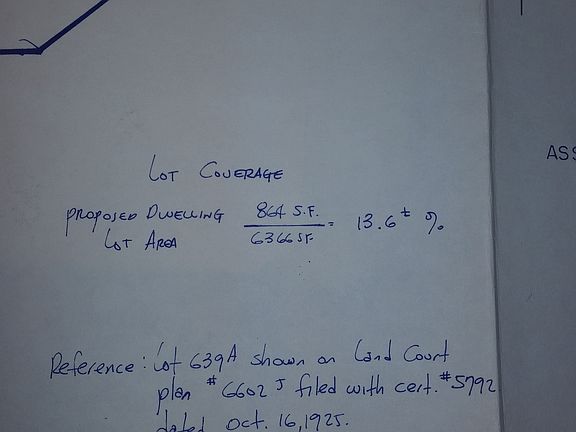 LOT COVERAGE
PROPOSED DWELLING 864 S.F. = 13.6 ± %
LOT AREA 6366 S.F.
ASS
Reference: Lot 639A shown on Land Court
plan #6602 J filed with cert. #5792
dated Oct. 16, 1925.